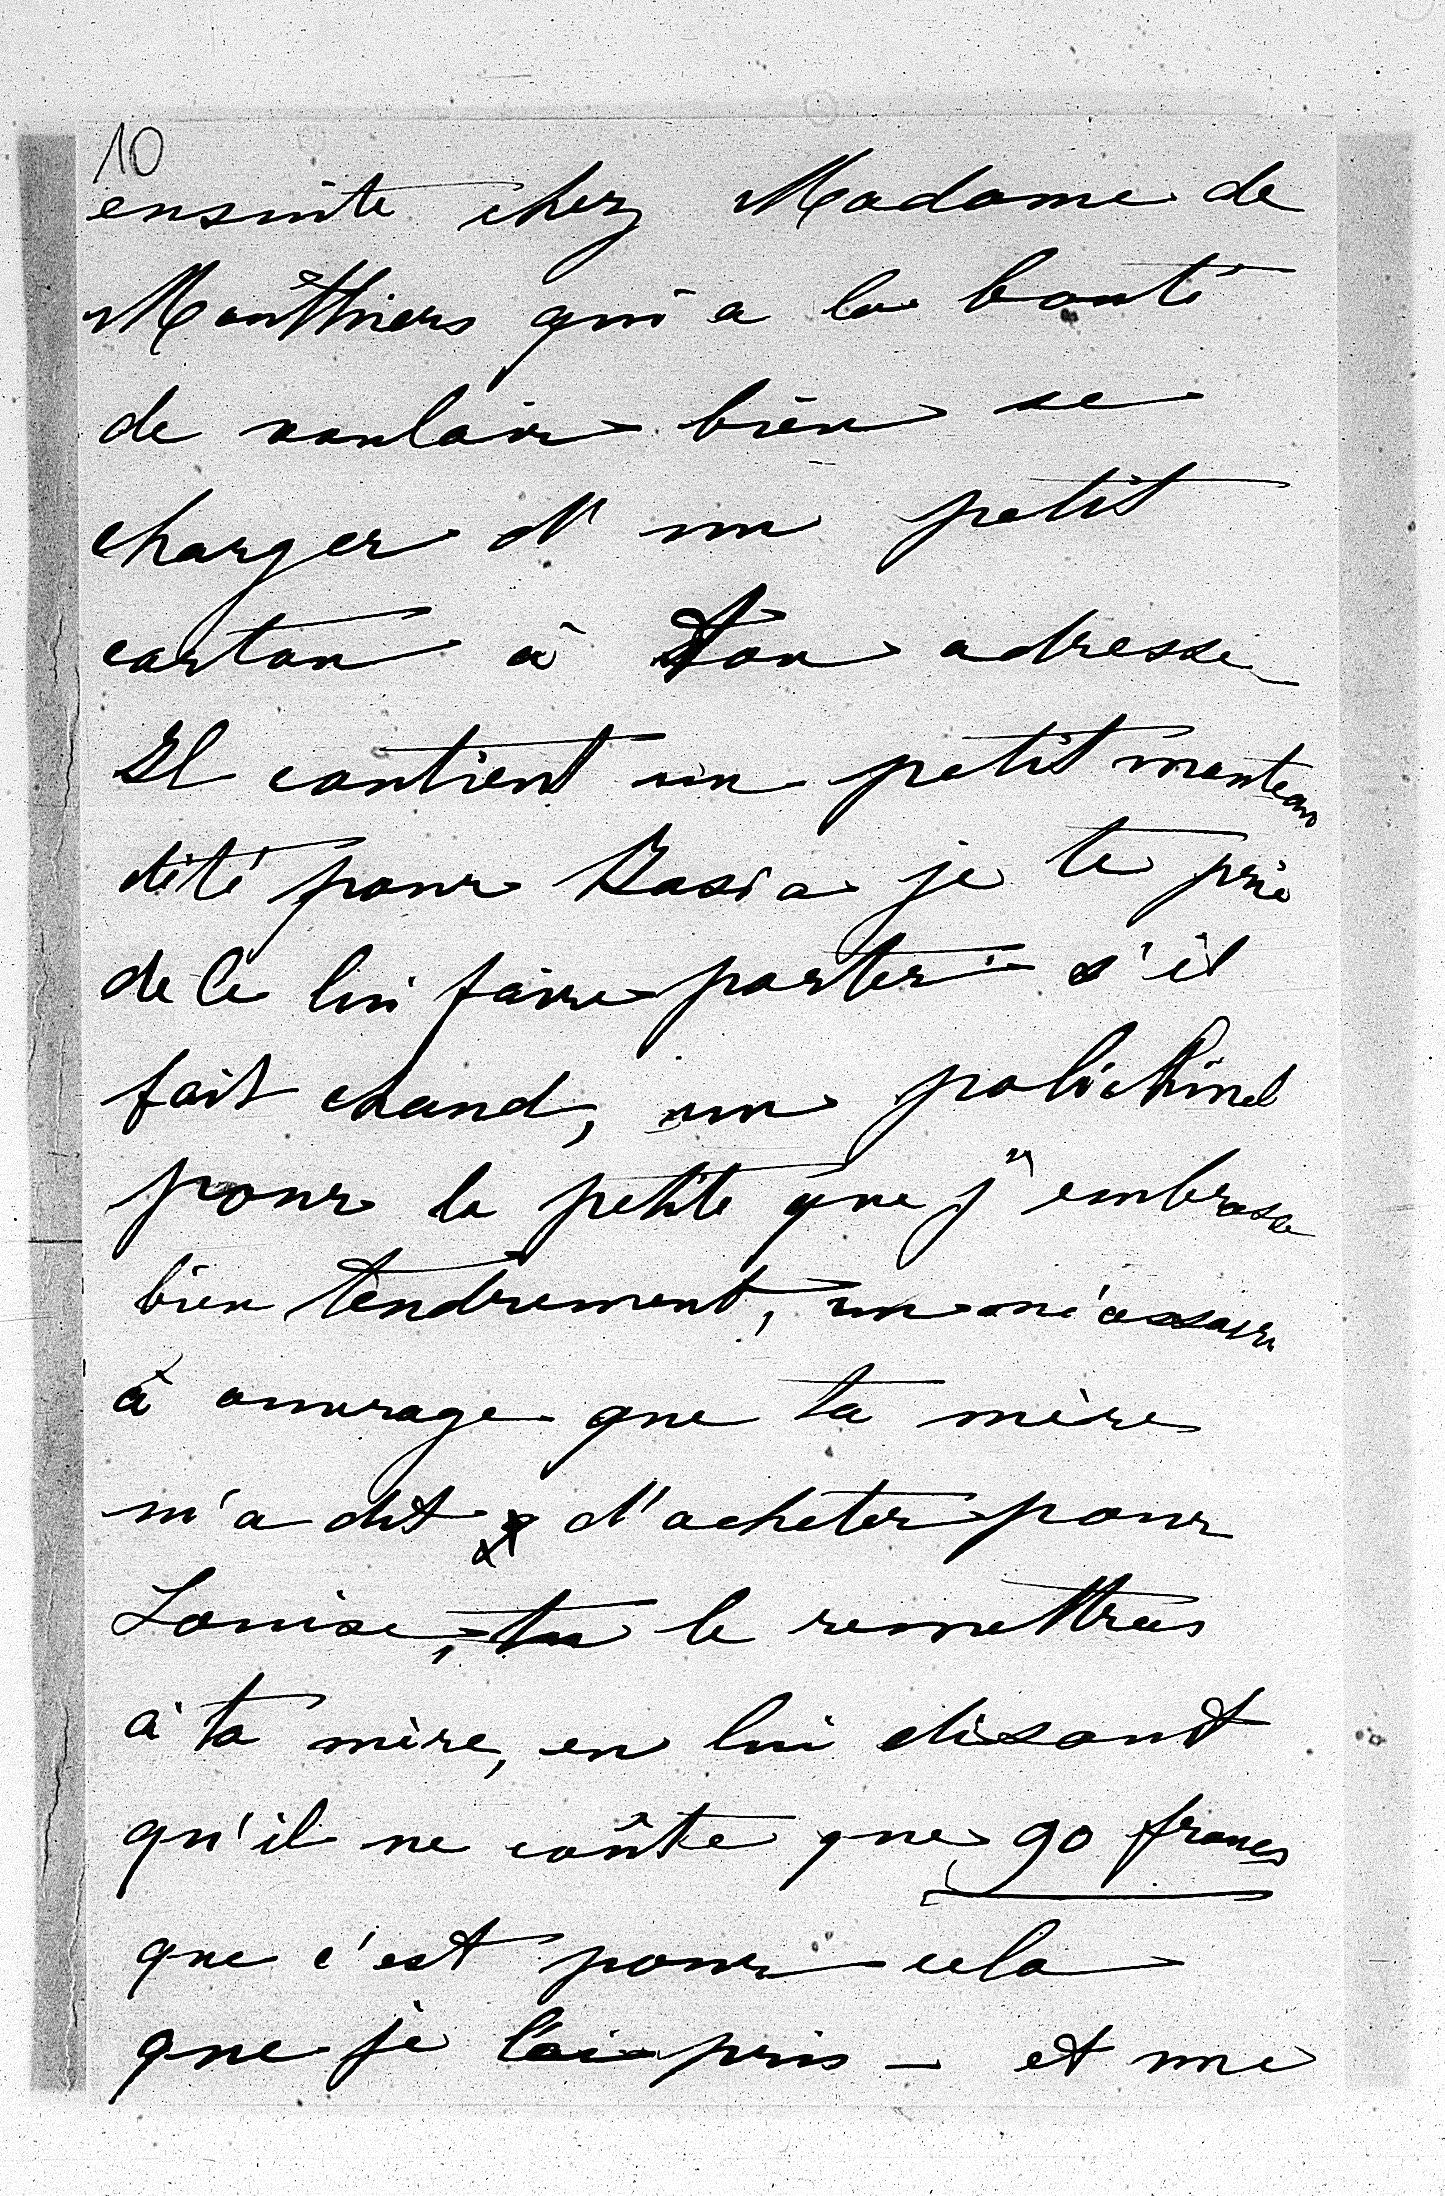 10
ensuite chez Madame de
Monthiers qui a la bonté
de vouloir bien se
charger d'un petit
carton à ton adresse
Il contient un petit manteau
d'été pour Basia je te prie
de le lui faire porter s'il
fait chaud, un polichinel
pour la petite que j'embrasse
bien tendrement, un nécessaire
à ouvrage que ta mère
m'a dit d'acheter pour
Louise, tu le remettras
à ta mère, en lui disant
qu'il ne coûte que 90 francs
que c'est pour cela
que je l'ai pris — et une